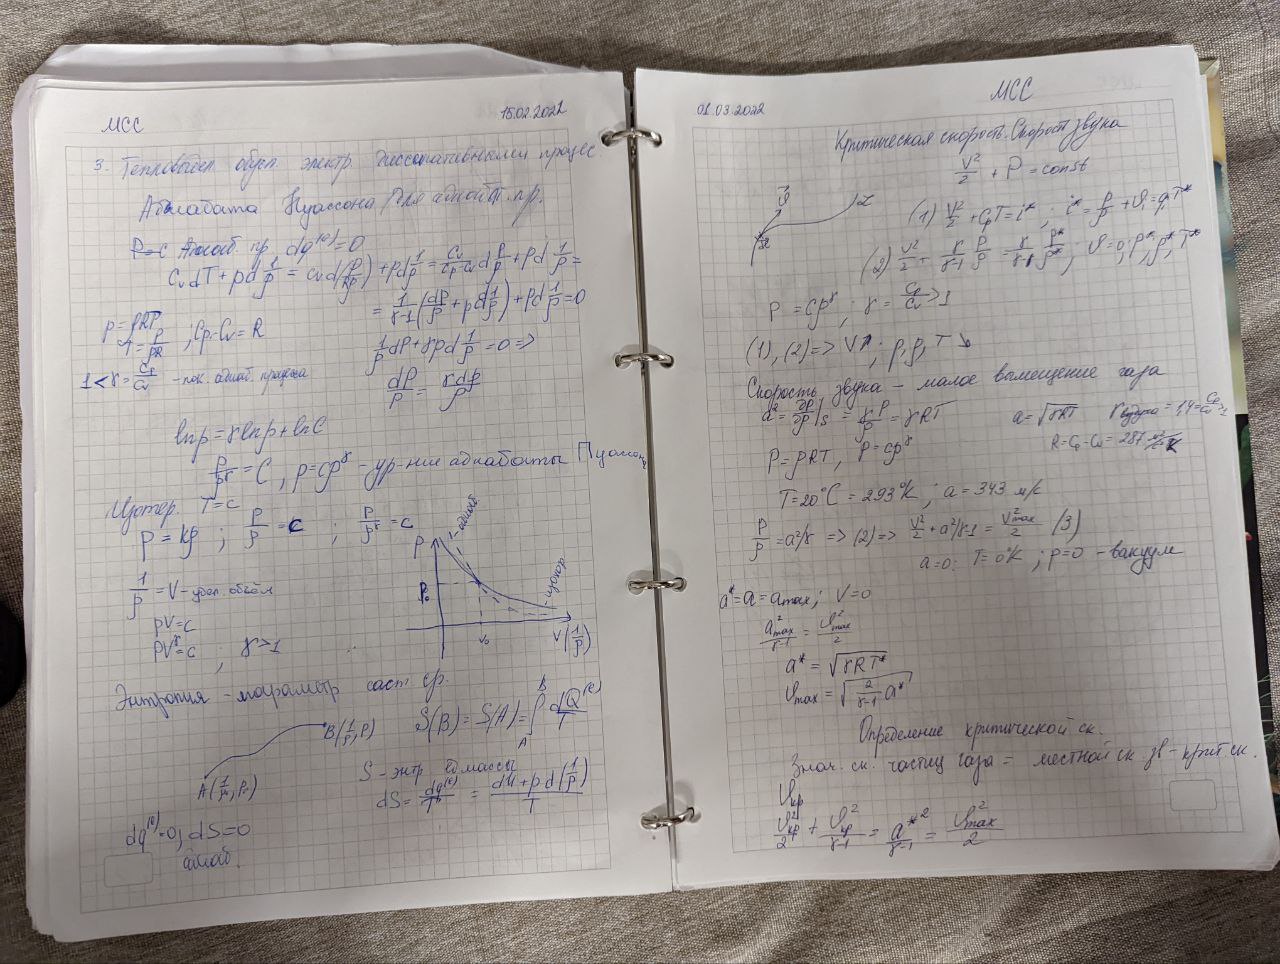 МСС 15.02.2022
3. Тепловыдел. обусл. электр. диссипативными процес.
Адиабата Пуассона для адиабат. пр.
P=C Адиаб. пр. dq^(e)=0
C_v dT + p d 1/ρ = C_v d(P/Rρ) + p d 1/ρ = C_v/(C_p-C_v) d P/ρ + p d 1/ρ =
= 1/(γ-1) (dp/ρ + p d 1/ρ) + p d 1/ρ = 0
p = ρRT
T = P/ρR ; C_p-C_v = R
1/ρ dP + γp d 1/ρ = 0 =>
1 < γ = C_p/C_v - пок. адиаб. процесса
dP/P = γdρ/ρ
ln p = γ ln ρ + ln C
P/ρ^γ = C, p = cρ^γ - ур-ние адиабаты Пуассона
Изотер. T=c
P = kρ ; P/ρ = c ; P/ρ^γ = c
адиаб
P
изотер
P_0
V_0
V(1/ρ)
1/ρ = V - удел. объём
PV=c
PV^γ=c ; γ>1
Энтропия - параметр сост. ср.
B(1/ρ, P)
A(1/ρ_0, P_0)
S(B) = S(A) = ∫ A B dQ^(e)/T
S - энтр. ед. массы
dS = dq^(e)/T = (dU + p d(1/ρ))/T
dq^(e)=0, dS=0
адиаб.
01.03.2022 МСС
Критическая скорость. Скорость звука
V²/2 + P = const
(1) V²/2 + C_pT = i* ; i* = P/ρ + U = C_pT*
(2) V²/2 + γ/(γ-1) P/ρ = γ/(γ-1) P*/ρ* ; v=0; P*, ρ*, T*
P = cρ^γ ; γ = C_p/C_v > 1
(1), (2) => V↗ ; p, ρ, T ↘
Скорость звука - малое вымещение газа
a² = ∂P/∂ρ|_S = γ P/ρ = γRT a = √γRT γ воздуха = 1,4 = C_p/C_v > 1
R = C_p - C_v = 287 м²/с²К
P = ρRT, P = cρ^γ
T = 20°C = 293°K ; a = 343 м/с
P/ρ = a²/γ => (2) => V²/2 + a²/γ-1 = V²_max/2 (3)
a=0: T = 0°K ; p=0 - вакуум
a* = a = a_max ; V=0
a²_max/(γ-1) = v²_max/2
a* = √γRT*
v_max = √(2/(γ-1)) a*
Определение критической ск.
Знач. ск. частиц газа = местной ск. зв - крит ск.
v_кр
v²_кр/2 + v²_кр/(γ-1) = a*²/(γ-1) = v²_max/2